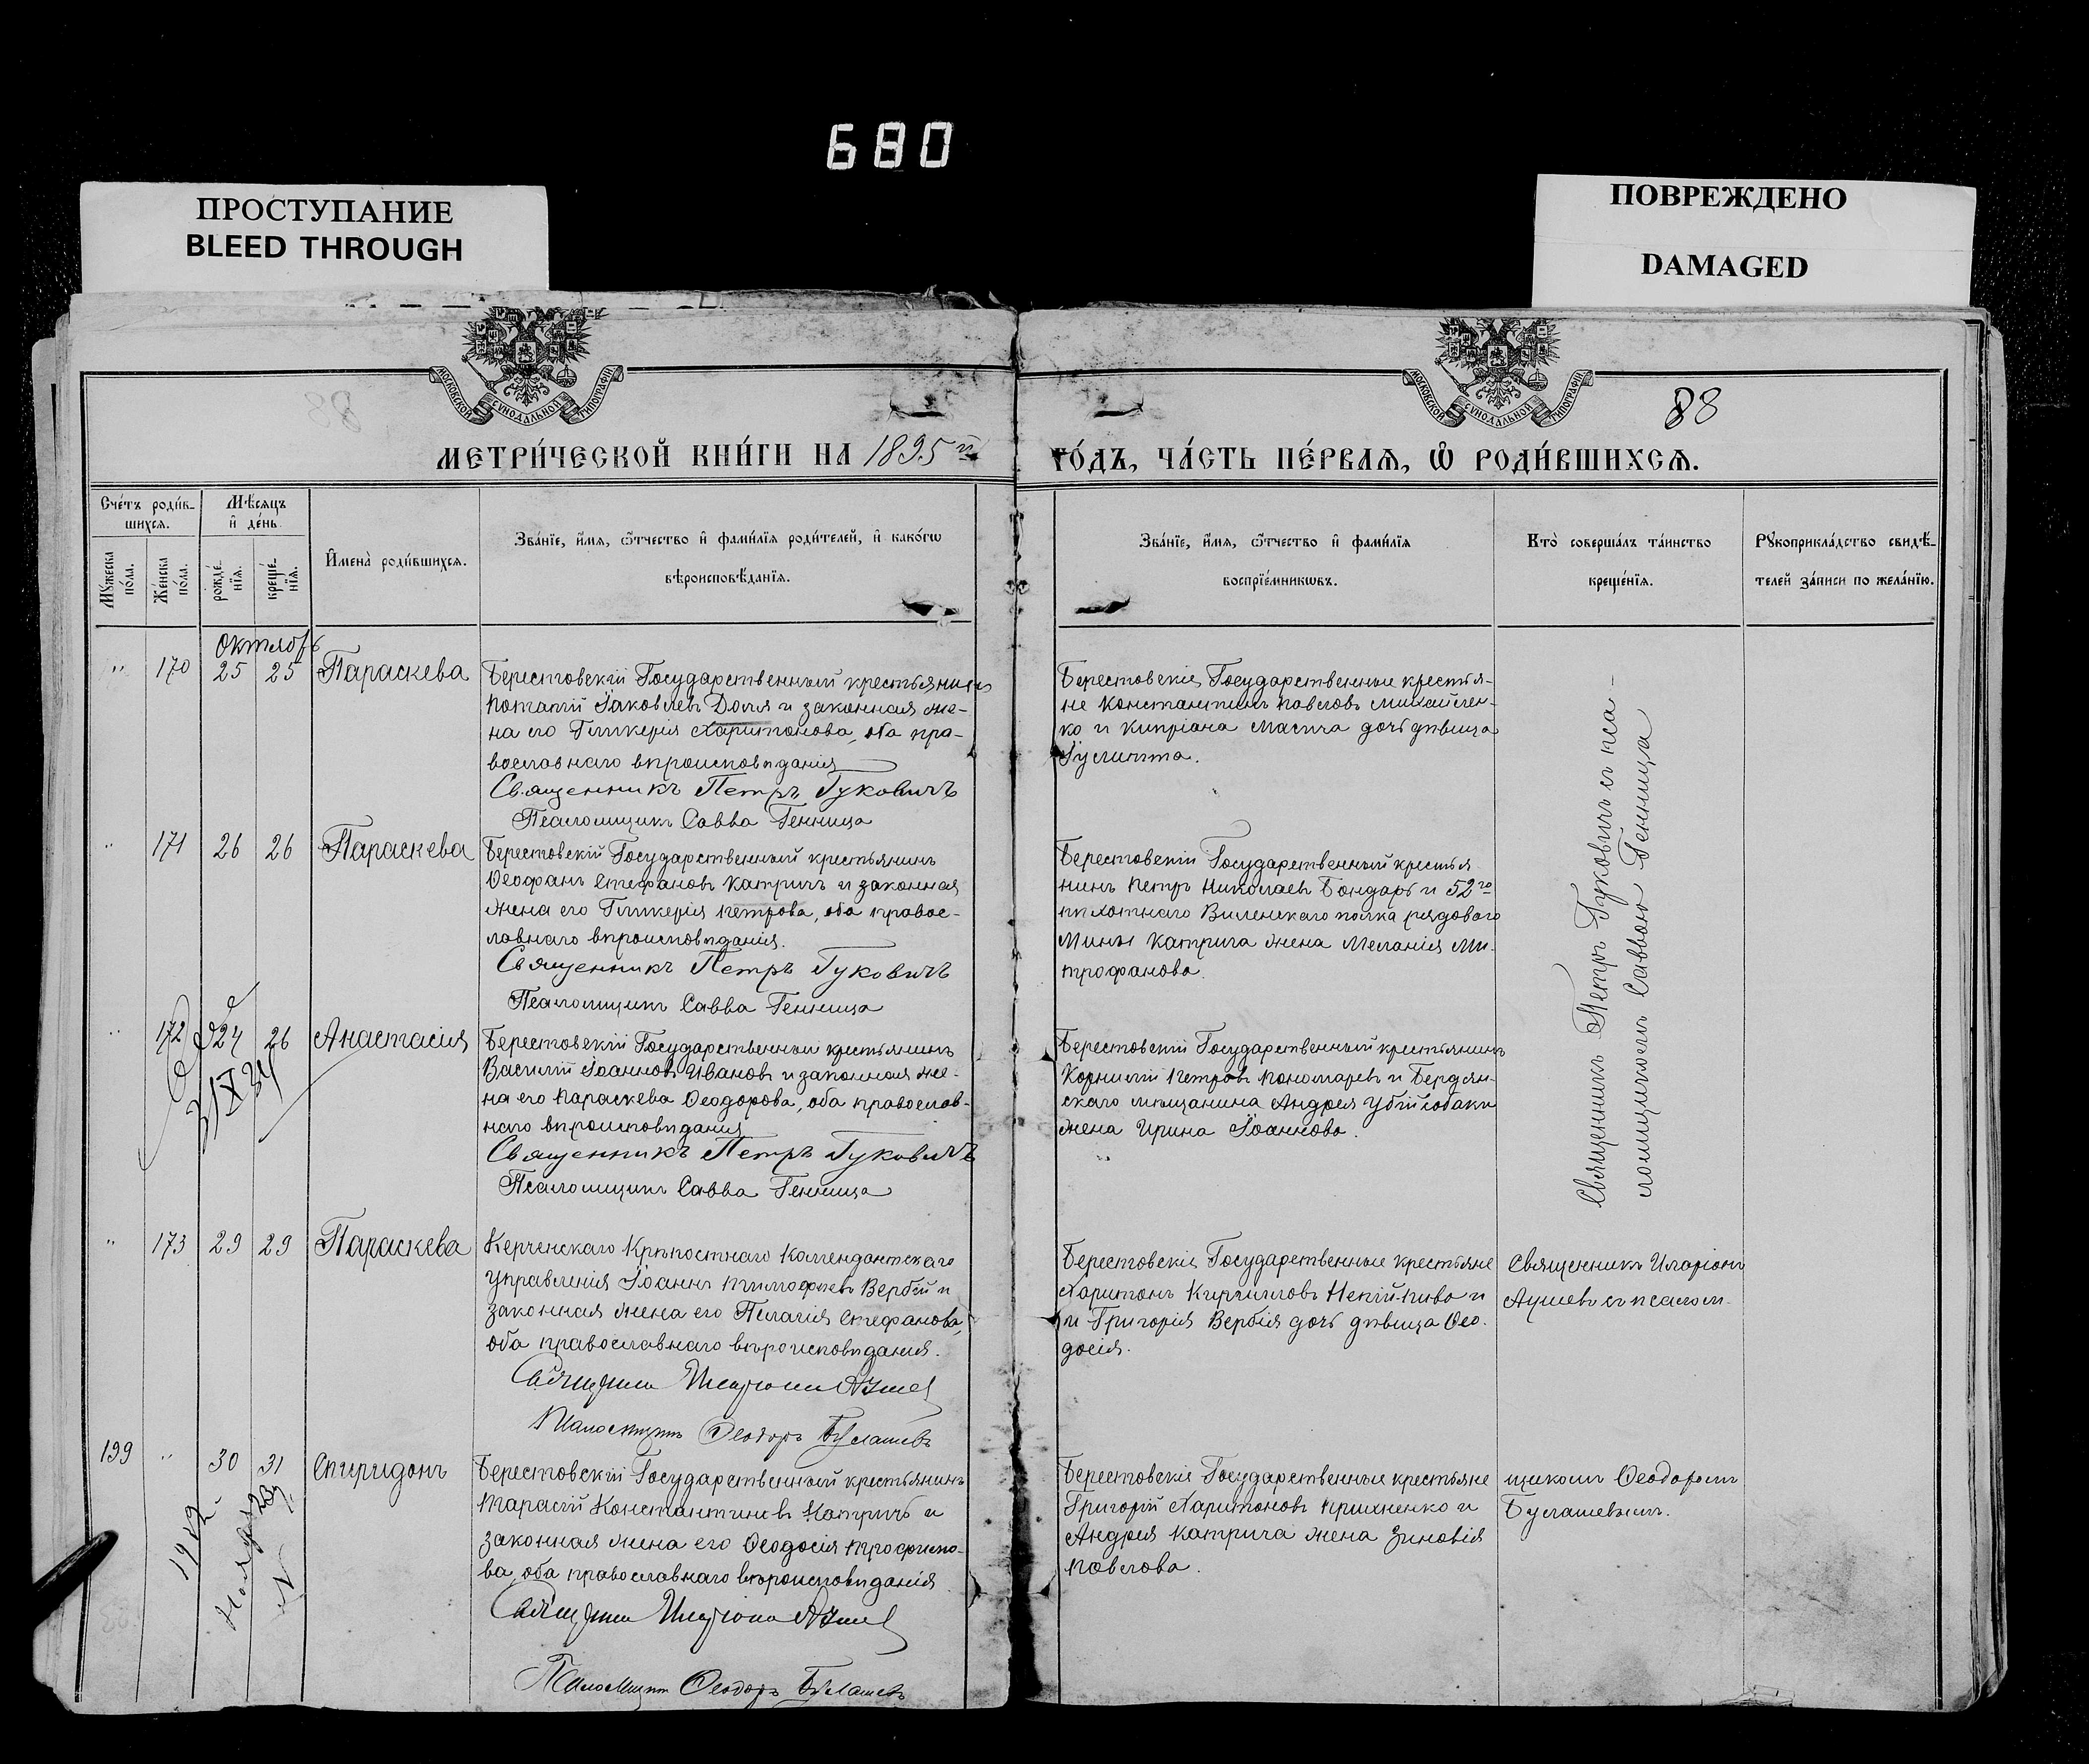 680
ПРОСТУПАНИЕ
BLEED THROUGH
ПОВРЕЖДЕНО
DAMAGED
МОСКОВСКОЙ СѴНОДАЛЬНОЙ ТИПОГРАФІИ
МОСКОВСКОЙ СѴНОДАЛЬНОЙ ТИПОГРАФІИ
88
МЕТРИ́ЧЕСКОЙ КНИ́ГИ НА 1895 й
ГО́ДЪ, ЧА́СТЬ ПЕ́РВАѦ, Ѽ РОДИ́ВШИХСѦ.
Сче́тъ роди́в-
шихсѧ.
Мѣ́сѧцъ
и҆ де́нь.
Мꙋ́жеска
по́ла.
Же́нска
по́ла.
рожде́-
нїѧ.
креще́-
нїѧ.
И҆мена̀ роди́вшихсѧ.
Зва́нїе, и҆́мѧ, ѻ҆́тчество и҆ фами́лїѧ роди́телей, и҆ како́гѡ
вѣроисповѣ́данїѧ.
Зва́нїе, и҆́мѧ, ѻ҆́тчество и҆ фами́лїѧ
воспрїе́мникѡвъ.
Кто̀ соверша́лъ та́инство
креще́нїѧ.
Рꙋкоприкла́дство свидѣ́-
телей за́писи по жела́нїю.
Октябрь
" 170 25 25 Параскева
Берестовскій Государственный крестьянинъ
Потапій Іаковлевъ Доля и законная же-
на его Гликерія Харитонова, оба пра-
вославнаго вѣроисповѣданія
Священникъ Петръ Гуковичъ
Псаломщикъ Савва Генница
Берестовскіе Государственные крестья-
не Константинъ Павловъ Михайлен-
ко и Кипріана Масича дочь дѣвица
Іулитта.
" 171 26 26 Параскева
Берестовскій Государственный крестьянинъ
Ѳеофанъ Стефановъ Катричъ и законная
жена его Гликерія Петрова, оба правос-
лавнаго вѣроисповѣданія.
Священникъ Петръ Гуковичъ
Псаломщикъ Савва Генница
Берестовскій Государственный крестья
нинъ Петръ Николаевъ Бондарь и 52го
пѣхотнаго Виленскаго полка рядового
Мины Катрича жена Меланія Ми-
трофанова.
" 172 24 26 Анастасія
3/X 34
Берестовскій Государственный крестьянинъ
Василій Іоанновъ Ивановъ и законная же-
на его Параскева Ѳеодорова, оба православ-
наго вѣроисповѣданія
Священникъ Петръ Гуковичъ
Псаломщикъ Савва Генница
Берестовскій Государственный крестьянинъ
Корнилій Петровъ Пономаревъ и Бердян-
скаго мѣщанина Андрея Убійсобаки
жена Ирина Іоаннова.
Священникъ Петръ Гуковичъ съ пса-
ломщикомъ Саввою Генница
" 173 29 29 Параскева
Керченскаго Крѣпостнаго Коммендантскаго
Управленія Іоаннъ Тимофеевъ Вербій и
законная жена его Пелагія Стефанова,
оба православнаго вѣроисповѣданія.
Священникъ Иларіонъ Аушев
Псаломщикъ Ѳеодоръ Булашевъ
Берестовскіе Государственные крестьяне
Харитонъ Кирилловъ Непій-пиво и
и Григорія Вербія дочь дѣвица Ѳео-
досія.
Священникъ Иларіонъ
Аушевъ съ псалом-
199 " 30 31 Спиридонъ
1942
Берестовскій Государственный крестьянинъ
Тарасій Константиновъ Катричъ и
законная жена его Ѳеодосія Трофимо-
ва, оба православнаго вѣроисповѣданія
Священникъ Иларіонъ Аушев
Псаломщикъ Ѳеодоръ Булашевъ
Берестовскіе Государственные крестьяне
Григорій Харитоновъ Прихненко и
Андрея Катрича жена Зиновія
Павлова.
щикомъ Ѳеодоромъ
Булашевымъ.